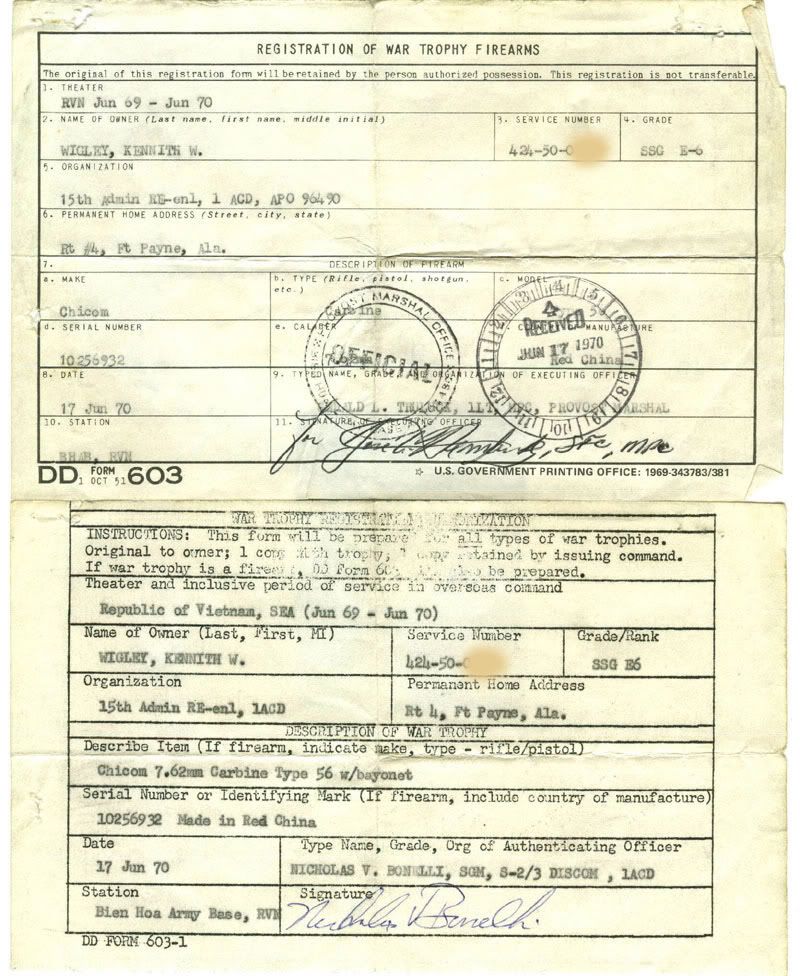 REGISTRATION OF WAR TROPHY FIREARMS
The original of this registration form will be retained by the person authorized possession. This registration is not transferable.
1. THEATER
RVN Jun 69 - Jun 70
2. NAME OF OWNER (Last name, first name, middle initial)
3. SERVICE NUMBER
4. GRADE
WIGLEY, KENNITH W.
424-50-
SSG E-6
5. ORGANIZATION
15th Admin RE-enl, 1 ACD, APO 96490
6. PERMANENT HOME ADDRESS (Street, city, state)
Rt #4, Ft Payne, Ala.
7. DESCRIPTION OF FIREARM
a. MAKE
b. TYPE (Rifle, pistol, shotgun, etc.)
c. MODEL
Chicom
Carbine
56
d. SERIAL NUMBER
e. CALIBER
MANUFACTURE
10256932
7.62mm
Red China
OFFICIAL
MARSHAL OFFICE
RECEIVED
JUN 17 1970
8. DATE
9. TYPED NAME, GRADE, AND ORGANIZATION OF EXECUTING OFFICER
17 Jun 70
L. 1LT, MPC, PROVOST MARSHAL
10. STATION
11. SIGNATURE OF EXECUTING OFFICER
BHAB, RVN
for SFC, MPC
DD FORM 1 OCT 51 603
☆ U.S. GOVERNMENT PRINTING OFFICE: 1969-343783/381
WAR TROPHY REGISTRATION AUTHORIZATION
INSTRUCTIONS: This form will be prepare for all types of war trophies.
Original to owner; 1 copy with trophy; 1 copy retained by issuing command.
If war trophy is a firearm, DD Form 603 also be prepared.
Theater and inclusive period of service in overseas command
Republic of Vietnam, SEA (Jun 69 - Jun 70)
Name of Owner (Last, First, MI)
Service Number
Grade/Rank
WIGLEY, KENNITH W.
424-50-
SSG E6
Organization
Permanent Home Address
15th Admin RE-enl, 1ACD
Rt 4, Ft Payne, Ala.
DESCRIPTION OF WAR TROPHY
Describe Item (If firearm, indicate make, type - rifle/pistol)
Chicom 7.62mm Carbine Type 56 w/bayonet
Serial Number or Identifying Mark (If firearm, include country of manufacture)
10256932 Made in Red China
Date
Type Name, Grade, Org of Authenticating Officer
17 Jun 70
NICHOLAS V. BONELLI, SGM, S-2/3 DISCOM , 1ACD
Station
Signature
Bien Hoa Army Base, RVN
Nicholas V Bonelli
DD FORM 603-1